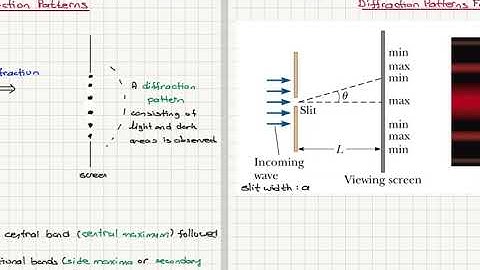 ction Patterns
ffraction
A diffraction
pattern
consisting of
light and dark
areas is observed
screen
central band (central maximum) followed
tional bands (side maxima or secondary
Diffraction Patterns F
min
max
min
max
min
max
min
θ
Slit
L
Incoming
wave
Viewing screen
slit width : a